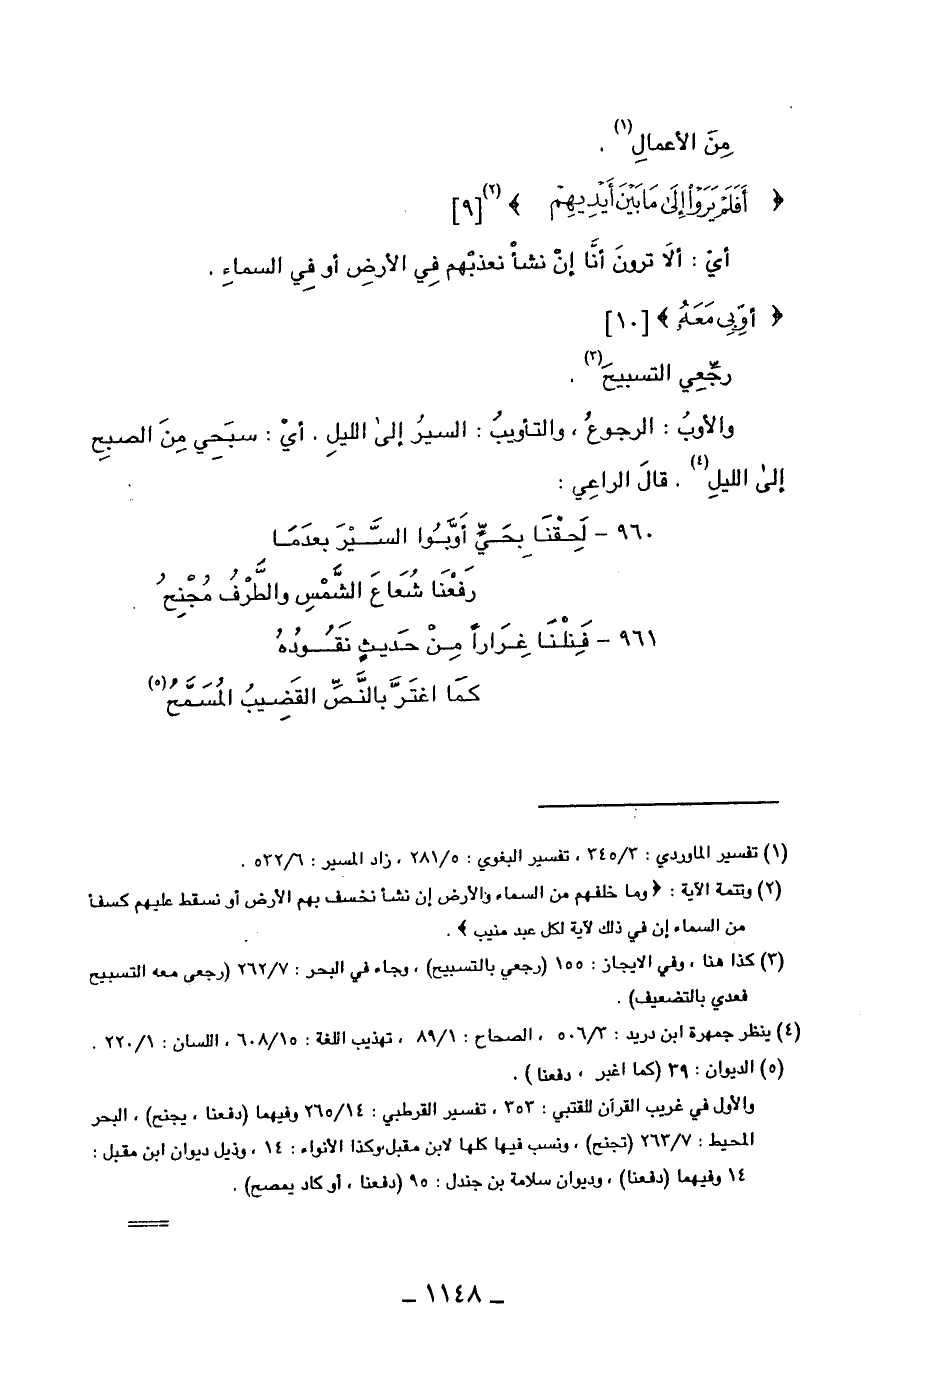 مِنَ الأعمالِ(١) .
﴿ أَفَلَمْ يَرَوْا إِلَىٰ مَا بَيْنَ أَيْدِيهِمْ ﴾(٢) [٩]
أيْ : ألَا ترونَ أنَّا إنْ نشأْ نعذبْهم فِي الأرضِ أو فِي السماءِ .
﴿ أَوِّبِى مَعَهُۥ ﴾ [١٠]
رجِّعِي التسبيحَ(٣) .
والأوبُ : الرجوعُ ، والتأويبُ : السيرُ إلىٰ الليلِ . أيْ : سبَحِي مِنَ الصبحِ
إلىٰ الليلِ(٤) . قالَ الراعِي :
٩٦٠ – لَحِقْنَا بِحَيٍّ أَوَّبُوا السَّيْرَ بعدَمَا
رَفَعْنَا شُعَاعَ الشَّمْسِ والطَّرْفُ مُجْنِحُ
٩٦١ – فَنِلْنَا غِرَاراً مِنْ حَديثٍ نَقُودُهُ
كمَا اغتَرَّ بالنَّصِّ القَضِيبُ المُسَمَّحُ(٥)
(١) تفسير الماوردي : ٣٤٥/٣ ، تفسير البغوي : ٢٨١/٥ ، زاد المسير : ٥٣٢/٦ .
(٢) وتتمة الآية : ﴿ وما خلفهم من السماء والأرض إن نشأ نخسف بهم الأرض أو نسقط عليهم كسفاً
من السماء إن في ذلك لآية لكل عبد منيب ﴾ .
(٣) كذا هنا ، وفي الايجاز : ١٥٥ (رجعي بالتسبيح) ، وجاء في البحر : ٢٦٢/٧ (رجعي معه التسبيح
فعدي بالتضعيف) .
(٤) ينظر جمهرة ابن دريد : ٥٠٦/٣ ، الصحاح : ٨٩/١ ، تهذيب اللغة : ٦٠٨/١٥ ، اللسان : ٢٢٠/١ .
(٥) الديوان : ٣٩ (كما اغبر ، دفعنا) .
والأول في غريب القرآن للقتبي : ٣٥٣ ، تفسير القرطبي : ٢٦٥/١٤ وفيهما (دفعنا ، يجنح) ، البحر
المحيط : ٢٦٣/٧ (تجنح) ، ونسب فيها كلها لابن مقبل،وكذا الأنواء : ١٤ ، وذيل ديوان ابن مقبل :
١٤ وفيهما (دفعنا) ، وديوان سلامة بن جندل : ٩٥ (دفعنا ، أو كاد يمصح) .
ـ ١١٤٨ ـ